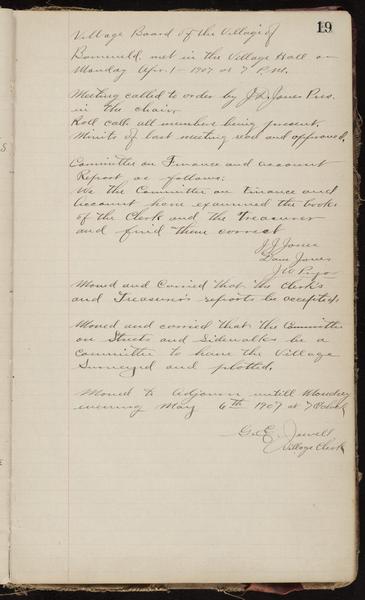 19
Village Board of the Village of
Barneveld, met in the Village Hall on
Monday Apr. 1 - 1907 at 7 P.M.
Meeting called to order by J.J. Jones Pres.
in the chair,
Roll call all members being present.
Minits of last meeting read and approved.
Committee on Finance and account
Report as follows:
We the Committee on finance and
account have examined the books
of the Clerk and the treasurer
and find them correct
J J Jones
Dan Jones
J W Pryor
Moved and Carried that the Clerk's
and Treasurer's reports be accepted.
Moved and carried that the Committee
on Streets and Sidewalks be a
Committee to have the Village
Surveyed and plotted.
Moved to Adjourn untill Monday
evening May 6th 1907 at 7 Oclock
Geo E. Jewell
Village Clerk